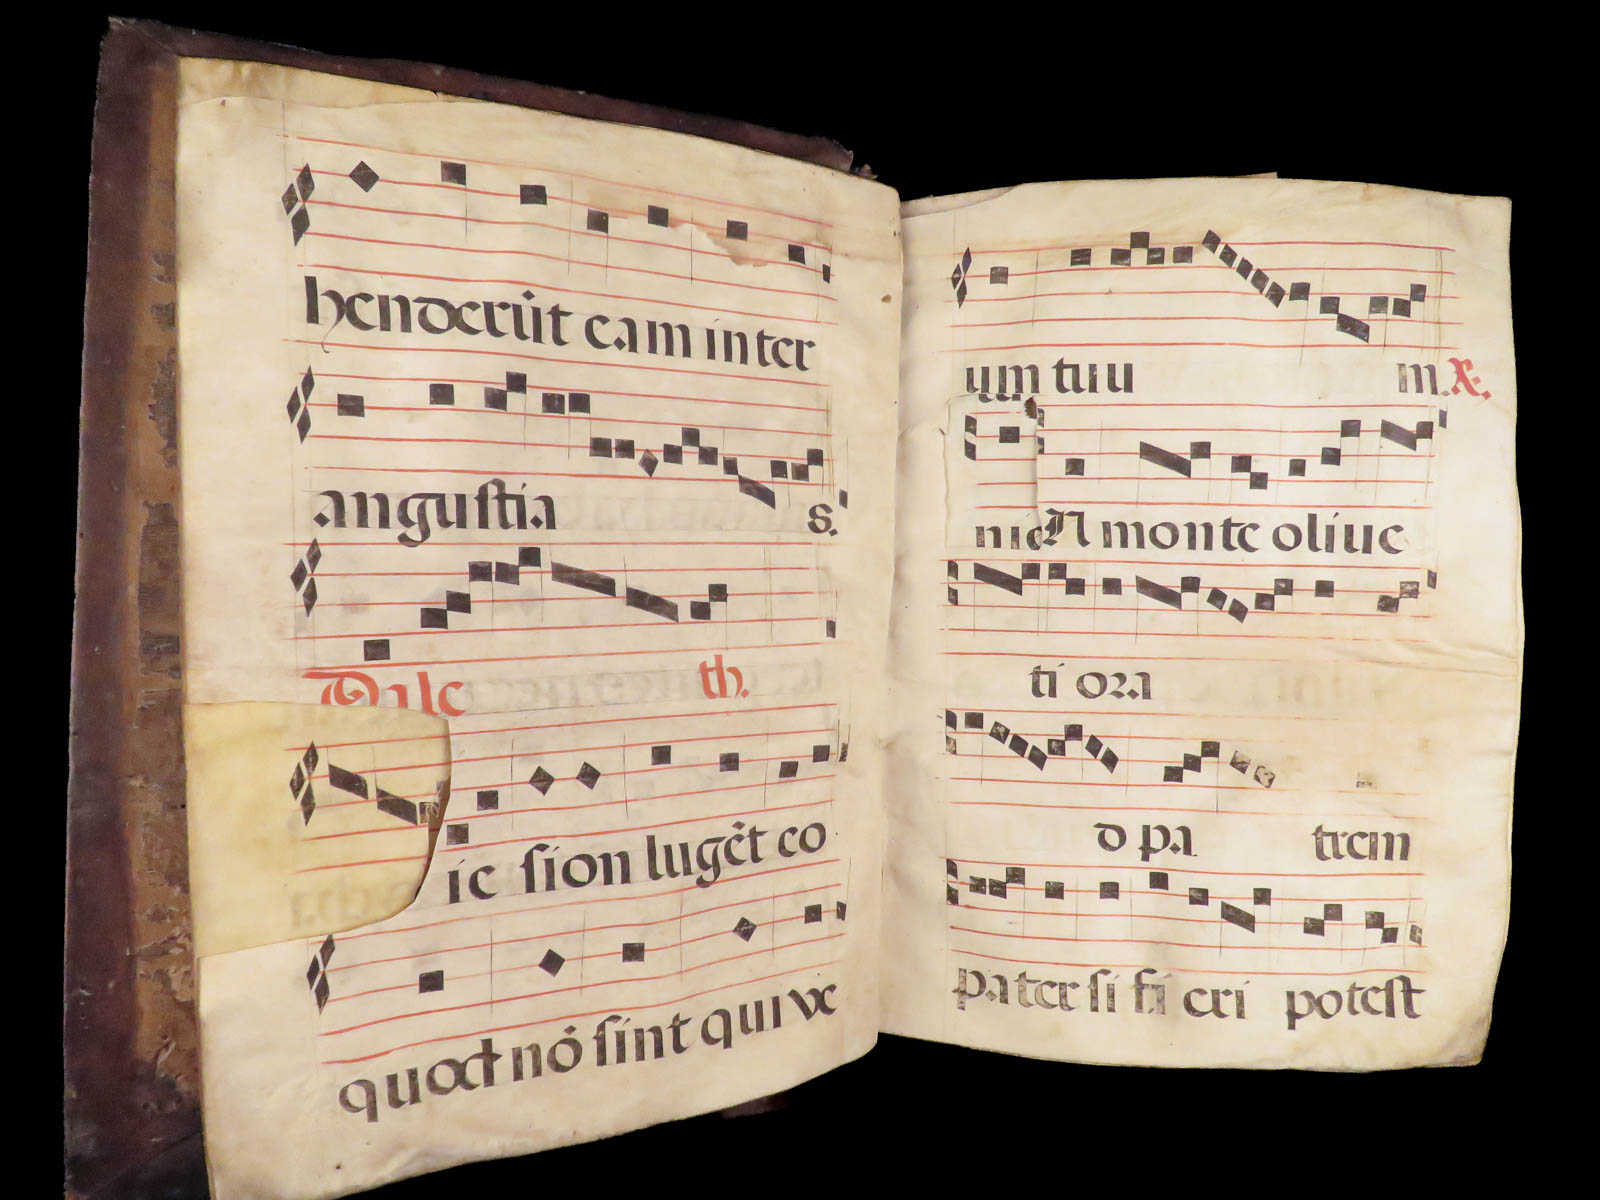 henderūt eam inter
angustia s.
Dale th.
ie sion lugēt eo
quod nō sint qui ve
um tuu m. R.
nie N monte olive
ti ora
d pa trem
pater si fi eri potest